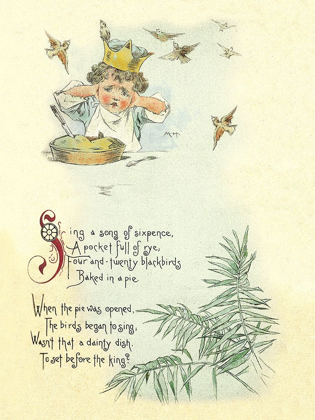 Sing a song of sixpence,
A pocket full of rye,
Four-and-twenty blackbirds
Baked in a pie.
When the pie was opened,
The birds began to sing,
Wasn't that a dainty dish
To set before the king?